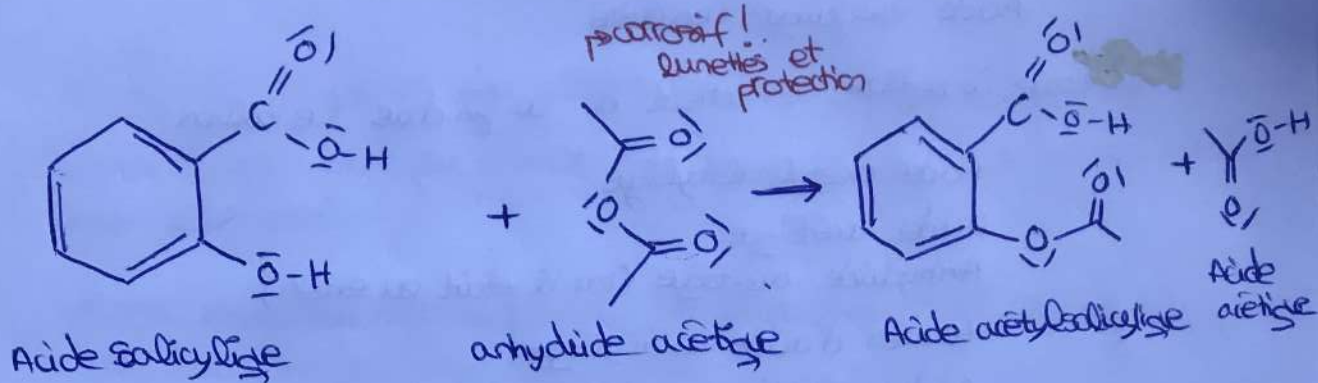 corrosif!
lunettes et
protection
O
C
O-H
O-H
+
O
O
O
→
O
C
O-H
O
O
+
O-H
O
Acide salicylique
anhydride acétique
Acide acétylsalicylique
Acide
acétique